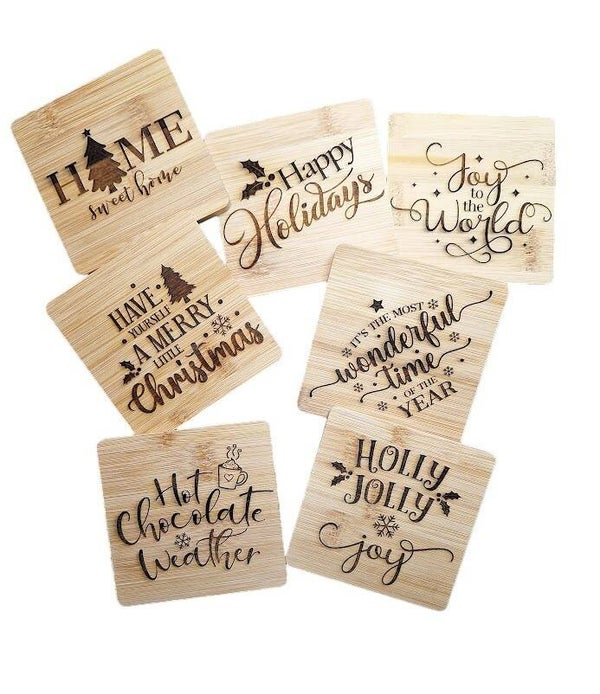 HOME
sweet home
Happy
Holidays
Joy
to
the
World
HAVE
YOURSELF
A MERRY
LITTLE
Christmas
IT'S THE MOST
wonderful
time
OF THE
YEAR
Hot
Chocolate
Weather
HOLLY
JOLLY
joy